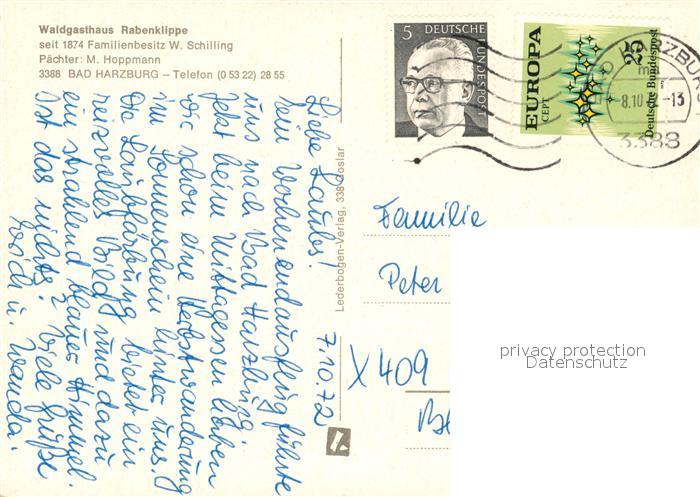 Waldgasthaus Rabenklippe
seit 1874 Familienbesitz W. Schilling
Pächter: M. Hoppmann
3388 BAD HARZBURG – Telefon (0 53 22) 28 55
7.10.72
Liebe Laubes!
Ein Wochenendausflug führte
uns nach Bad Harzburg.
Jetzt beim Mittagessen haben
wir schon eine Herbstwanderung
im Sonnenschein hinter uns.
Die Laubfärbung bietet ein
reizvolles Bild, und dazu
ein strahlend blauer Himmel.
Ist das nichts? Viele Grüße
u. Wanda.
Lederbogen-Verlag, 338 Goslar
5
DEUTSCHE
BUNDESPOST
EUROPA
CEPT
25
Deutsche Bundespost
BAD HARZBURG
8.10. -13
3388
Familie
Peter
X409
privacy protection
Datenschutz